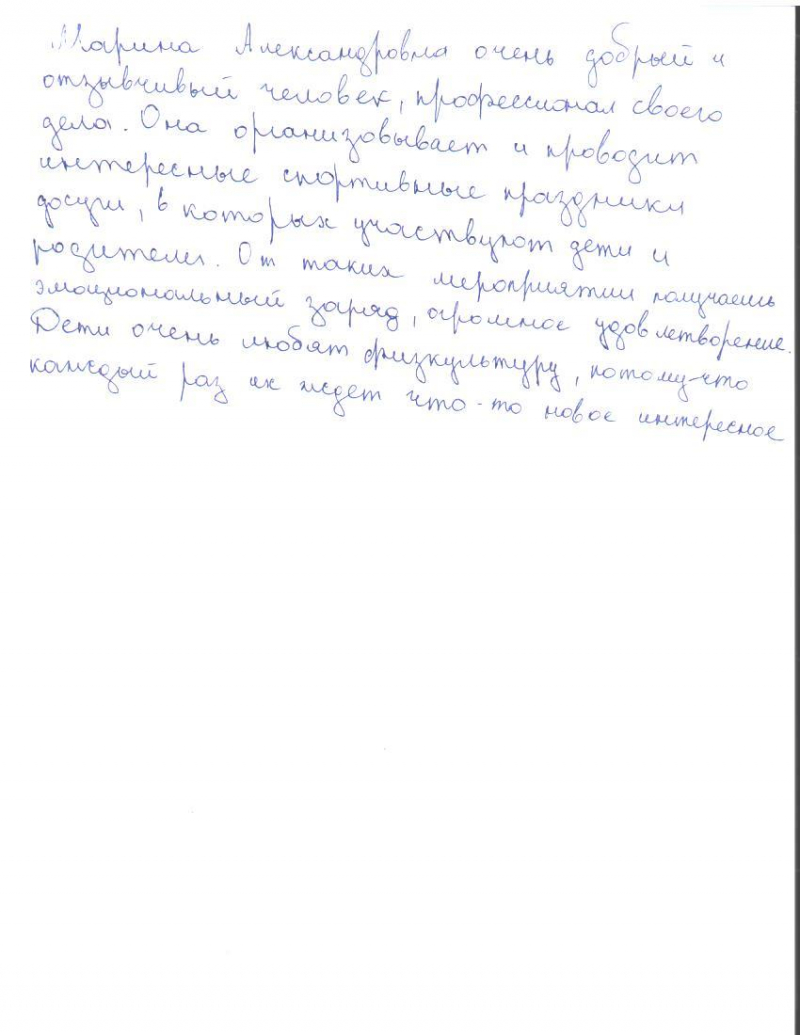 Марина Александровна очень добрый и
отзывчивый человек, профессионал своего
дела. Она организовывает и проводит
интересные спортивные праздники
досуги, в которых участвуют дети и
родители. От таких мероприятии получаешь
эмоциональный заряд, огромное удовлетворение.
Дети очень любят физкультуру, потому-что
каждый раз их ждет что-то новое интересное